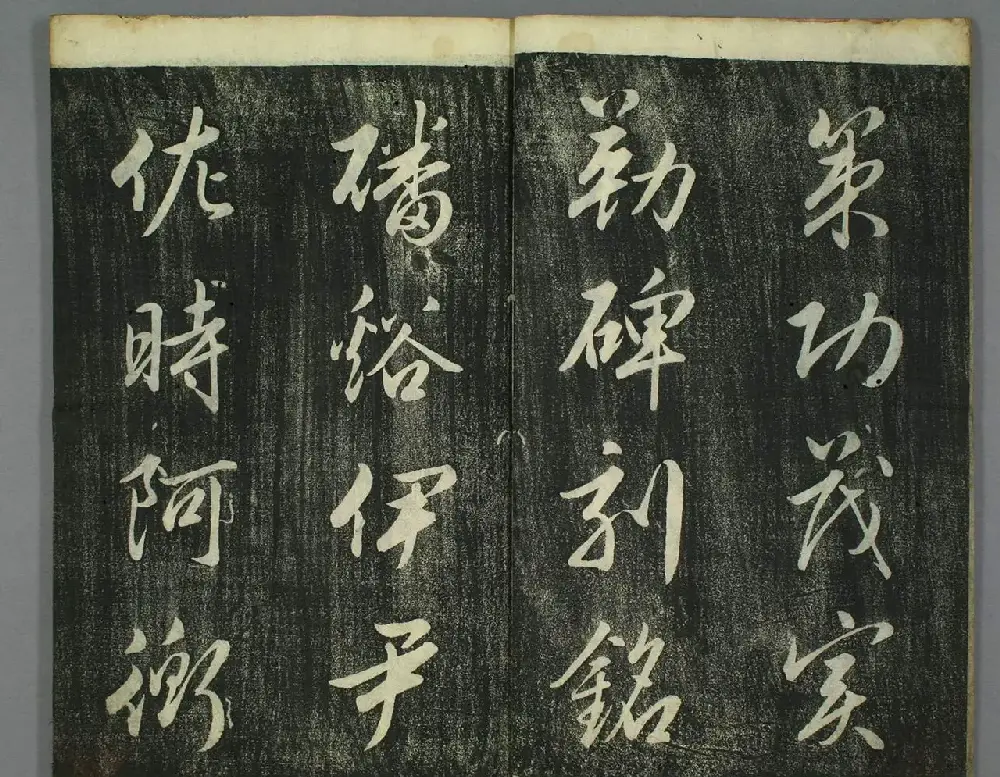 策功茂実
勒碑刻銘
磻谿伊尹
佐時阿衡